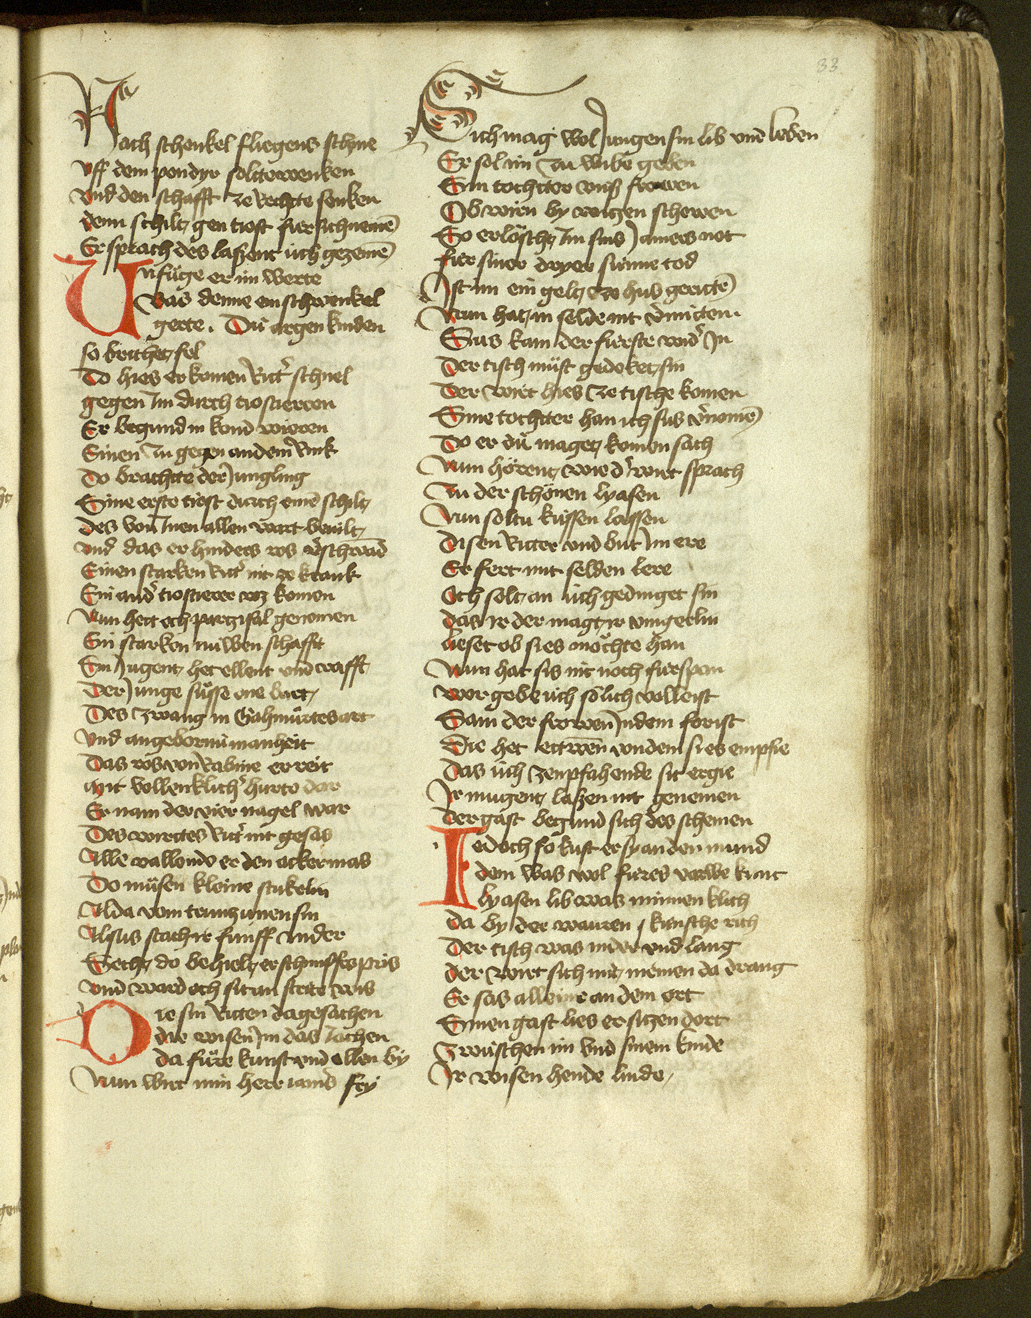 33
Nach schenkel fliegens schne
vff dem pondyr solt er wenken
vnd den schafft ze rechte senken
denn schilt gen tiost für sich nemē
Er sprach des laßent üch gezemē
Vnfüge er im werte
Bas denne ein schwenkel
gerte. Dü argen kinden
so brichet fel
Do hies er komen Ritt̄ schnel
gegen Im durch tiostieren
Er begund in kond wieren
Einen zu gegen andem Rink
Do brachtte der Jungling
Sine erste tiost durch einē schilt
des von Inen allen wart beuilt
vnd das er hinders ros v̄schwād
Einen starken Ritt̄ nit ze krank
Ein and̄ tiostierer wz komen
Nun hett och parzifal genomen
Ein starken nüwen schafft
Sin Jugent het ellent vnd crafft
Der Junge süsse one bart
Des zwang in Gahmürtes art
vnd angebornü manheit
Das ros von Rabine er reit
mit vollenklich̄ hurte dar
Er nam der vier nagel war
Des wirtes Ritt̄ nit gesas
Alle vallende er den ackermas
Do müsen kleine stukelin
Alda vom trunzunen sin
Alsus stach ir fünff nider
Secht do behielt er schinffes pris
vnd ward och sit an strite wis
Die sin Ritten da gesachen
die wisen Im das Jachen
da füre kunst vnd ellen by
Nun wirt min herr iamers fry
Sich mag wol Jungen sin lib vnd leben
Er sol im zu wibe geben
Sin tochtter vnß frowen
Ob wirn by witzen schowen
So erlöscht Im sins Jamers not
für siner dryer sünne tod
Ist im ein gelt ze hus gerittē
Nun hat in selde nit v̄mitten
Sus kam der fürste wid̄ In
Der tisch müst gedeket sin
Der wirt hies ze tische komen
Sine tochtter han ich sus v̄nomē
Do er dü maget komen sach
Nun hörent wie d̄ wirt sprach
Zu der schönen lyasen
Nun soltu küssen lassen
Disen Ritter vnd büt Im ere
Er fert mit selden lere
Och solt an üch gedinget sin
das Ir der magt ir vingerlin
ließet ob sies möchte han
Nun hat sis nit noch fürspan
wer gebe üch sölich volleist
Sam der frowen In dem forist
Die het ettwen von dem si es empfie
Das üch zenpfahende sit ergie
Ir mugent laßen nit genemen
der gast begund sich des schemen
Iedoch so kust er sy an den mund
dem was wol füres varwe kunt
lyasen lib was minnenklich
da by der wauren kunsche rich
Der tisch was nider vnd lang
der wirt sich mit niemen da drang
Er sas alleine an dem ort
Sinen gast lies er sitzen dort
Zwüschen im vnd sinem kinde
Ir wisen hende linde